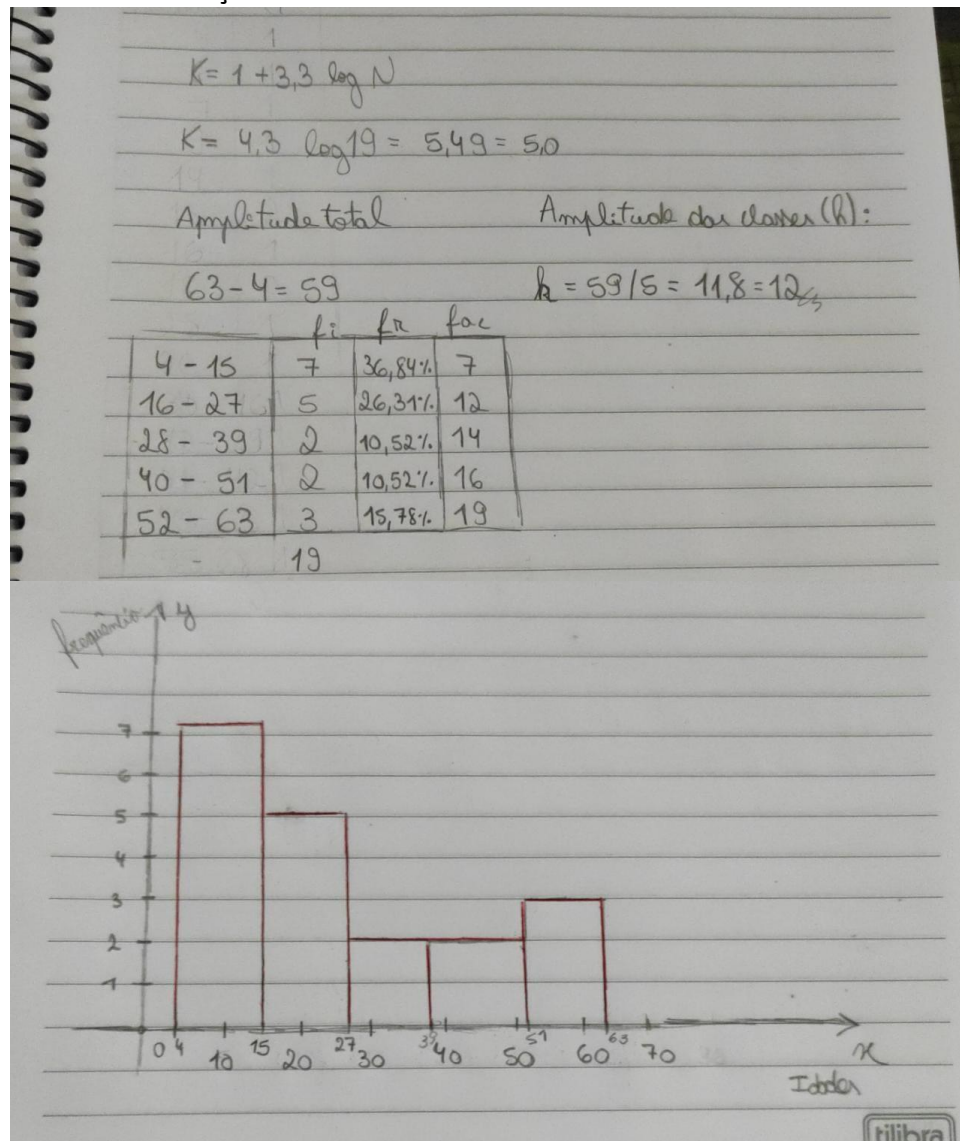 K= 1 + 3,3 log N
K= 4,3 log 19 = 5,49 = 5,0
Amplitude total
Amplitude das classes (h):
63 - 4 = 59
h = 59/5 = 11,8 = 12
fi fr fac
4 - 15 7 36,84% 7
16 - 27 5 26,31% 12
28 - 39 2 10,52% 14
40 - 51 2 10,52% 16
52 - 63 3 15,78% 19
19
frequência y
7
6
5
4
3
2
1
0 4 10 15 20 27 30 39 40 50 51 60 63 70 x
Idades
tilibra